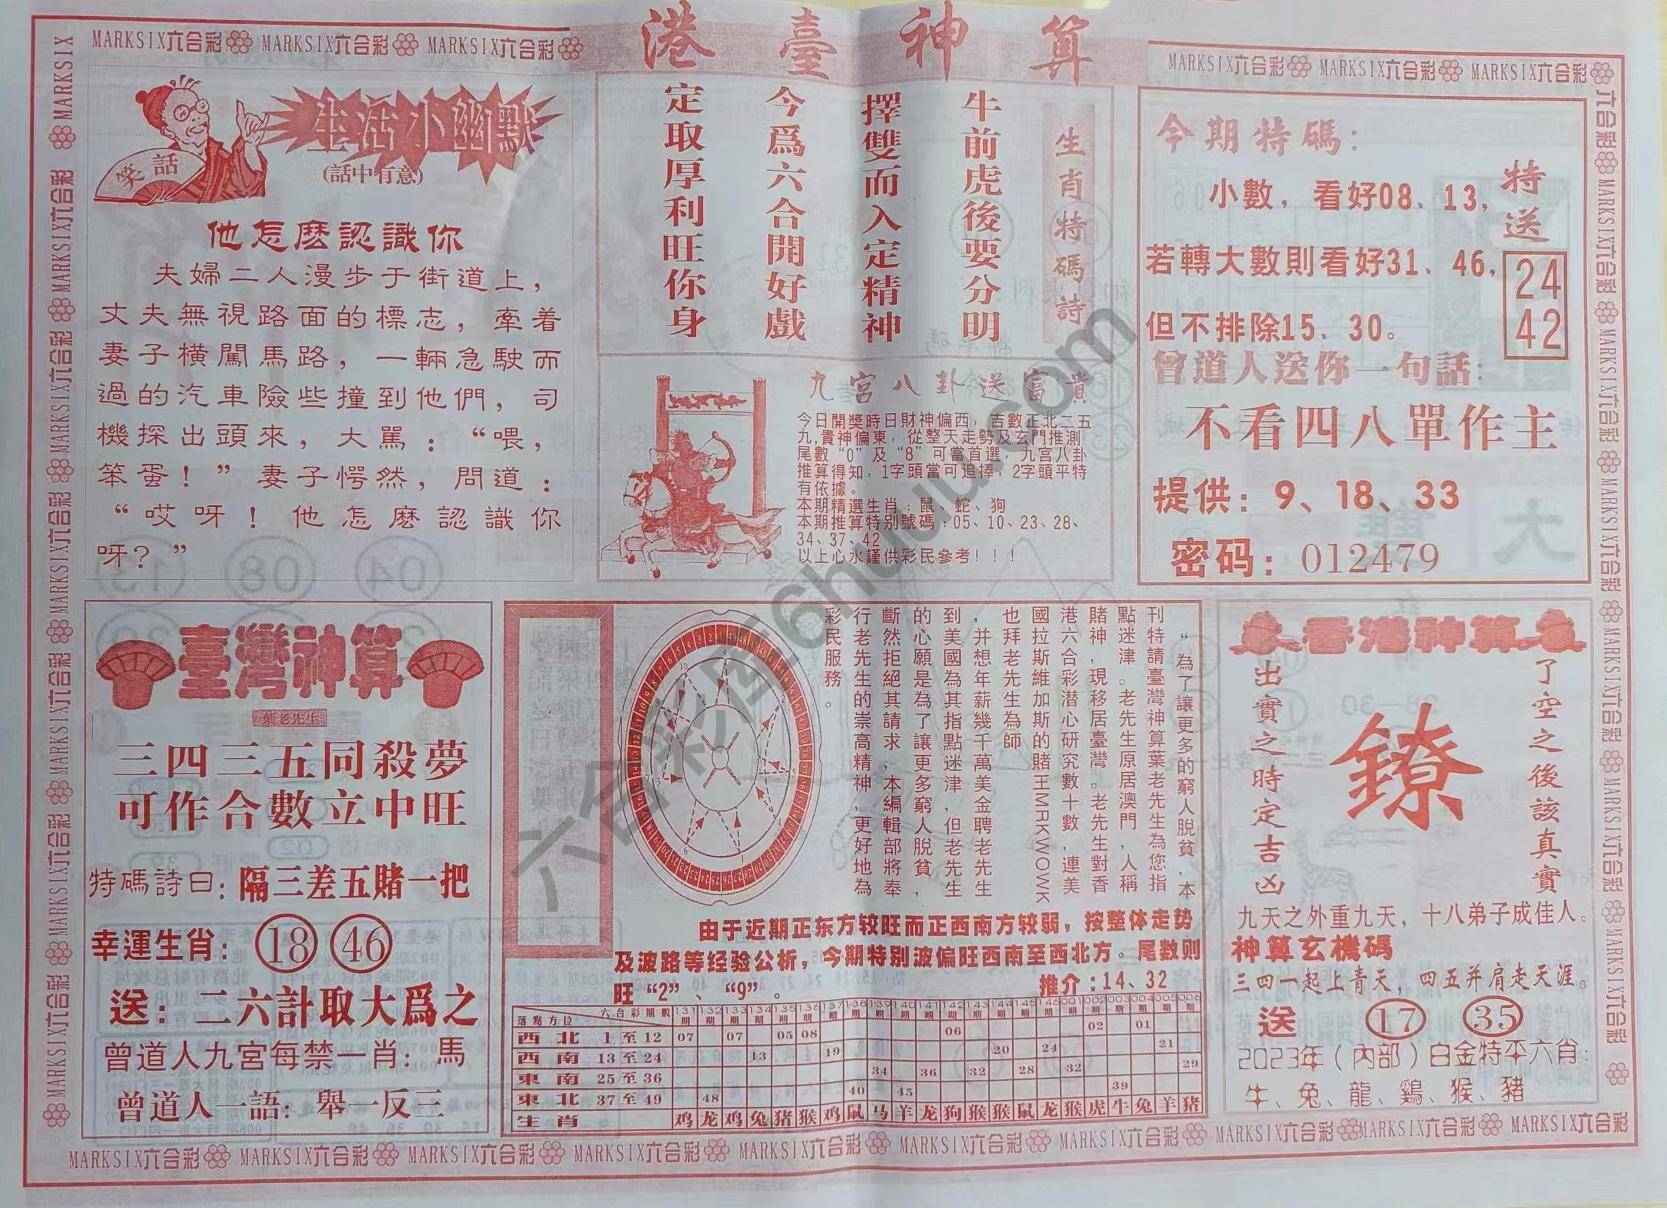 港臺神算
MARKSIX六合彩 MARKSIX六合彩 MARKSIX六合彩
MARKSIX六合彩 MARKSIX六合彩 MARKSIX六合彩
笑話
生活小幽默
(話中有意)
他怎麽認識你
夫婦二人漫步于街道上，
丈夫無視路面的標志，牽着
妻子橫闖馬路，一輛急駛而
過的汽車險些撞到他們，司
機探出頭來，大罵：“喂，
笨蛋！”妻子愕然，問道：
“哎呀！他怎麽認識你
呀？”
生肖特碼詩
牛前虎後要分明
擇雙而入定精神
今爲六合開好戲
定取厚利旺你身
九宮八卦送富貴
今日開獎時日財神偏西，吉數正北二五
九,貴神偏東，從整天走勢及玄門推測
尾數“0”及“8”可當首選，九宮八卦
推算得知，1字頭當可追捧，2字頭平特
有依據。
本期精選生肖：鼠、蛇、狗
本期推算特别號碼：05、10、23、28、
34、37、42
以上心水謹供彩民參考！！！
今期特碼：
小數，看好08、13，
若轉大數則看好31、46，
但不排除15、30。
特送
24
42
曾道人送你一句話：
不看四八單作主
提供：9、18、33
密码：012479
臺灣神算
葉老先生
三四三五同殺夢
可作合數立中旺
特碼詩曰：隔三差五賭一把
幸運生肖：18 46
送：二六計取大爲之
曾道人九宮每禁一肖：馬
曾道人一語：舉一反三
“为了讓更多的窮人脱貧，本
刊特請臺灣神算葉老先生為您指
點迷津。老先生原居澳門，人稱
賭神，現移居臺灣。老先生對香
港六合彩潜心研究數十數，連美
國拉斯維加斯的賭王MRKWOWK
也拜老先生為師
，并想年薪幾千萬美金聘老先生
到美國為其指點迷津，但老先生
的心願是為了讓更多窮人脱貧，
斷然拒絕其請求，本編輯部將奉
行老先生的崇高精神，更好地為
彩民服務。
由于近期正东方较旺而正西南方较弱，按整体走势
及波路等经验公析，今期特别波偏旺西南至西北方。尾数则
旺“2”、“9”。 推介：14、32
落點方位 六合彩期數 131期 132期 133期 134期 135期 136期 137期 138期 139期 140期 141期 142期 143期 144期 145期 146期 001期 002期 003期 004期 005期 006期
西北 1至12 07 07 05 08 06 02 01
西南 13至24 13 19 20 24 21
東南 25至36 34 36 32 28 32 29
東北 37至49 48 40 45 39
生肖 鸡 龙 鸡 兔 猪 猴 鸡 鼠 马 羊 龙 狗 猴 猴 鼠 龙 猴 虎 牛 兔 羊 猪
香港神算
了空之後該真實
鐐
出實之時定吉凶
九天之外重九天，十八弟子成佳人。
神算玄機碼
三四一起上青天，四五并肩走天涯。
送 17 35
2023年（內部）白金特平六肖：
牛、兔、龍、鷄、猴、豬
MARKSIX六合彩 MARKSIX六合彩 MARKSIX六合彩 MARKSIX六合彩 MARKSIX六合彩 MARKSIX六合彩 MARKSIX六合彩 MARKSIX六合彩 MARKSIX六合彩
六合彩库6huku.com